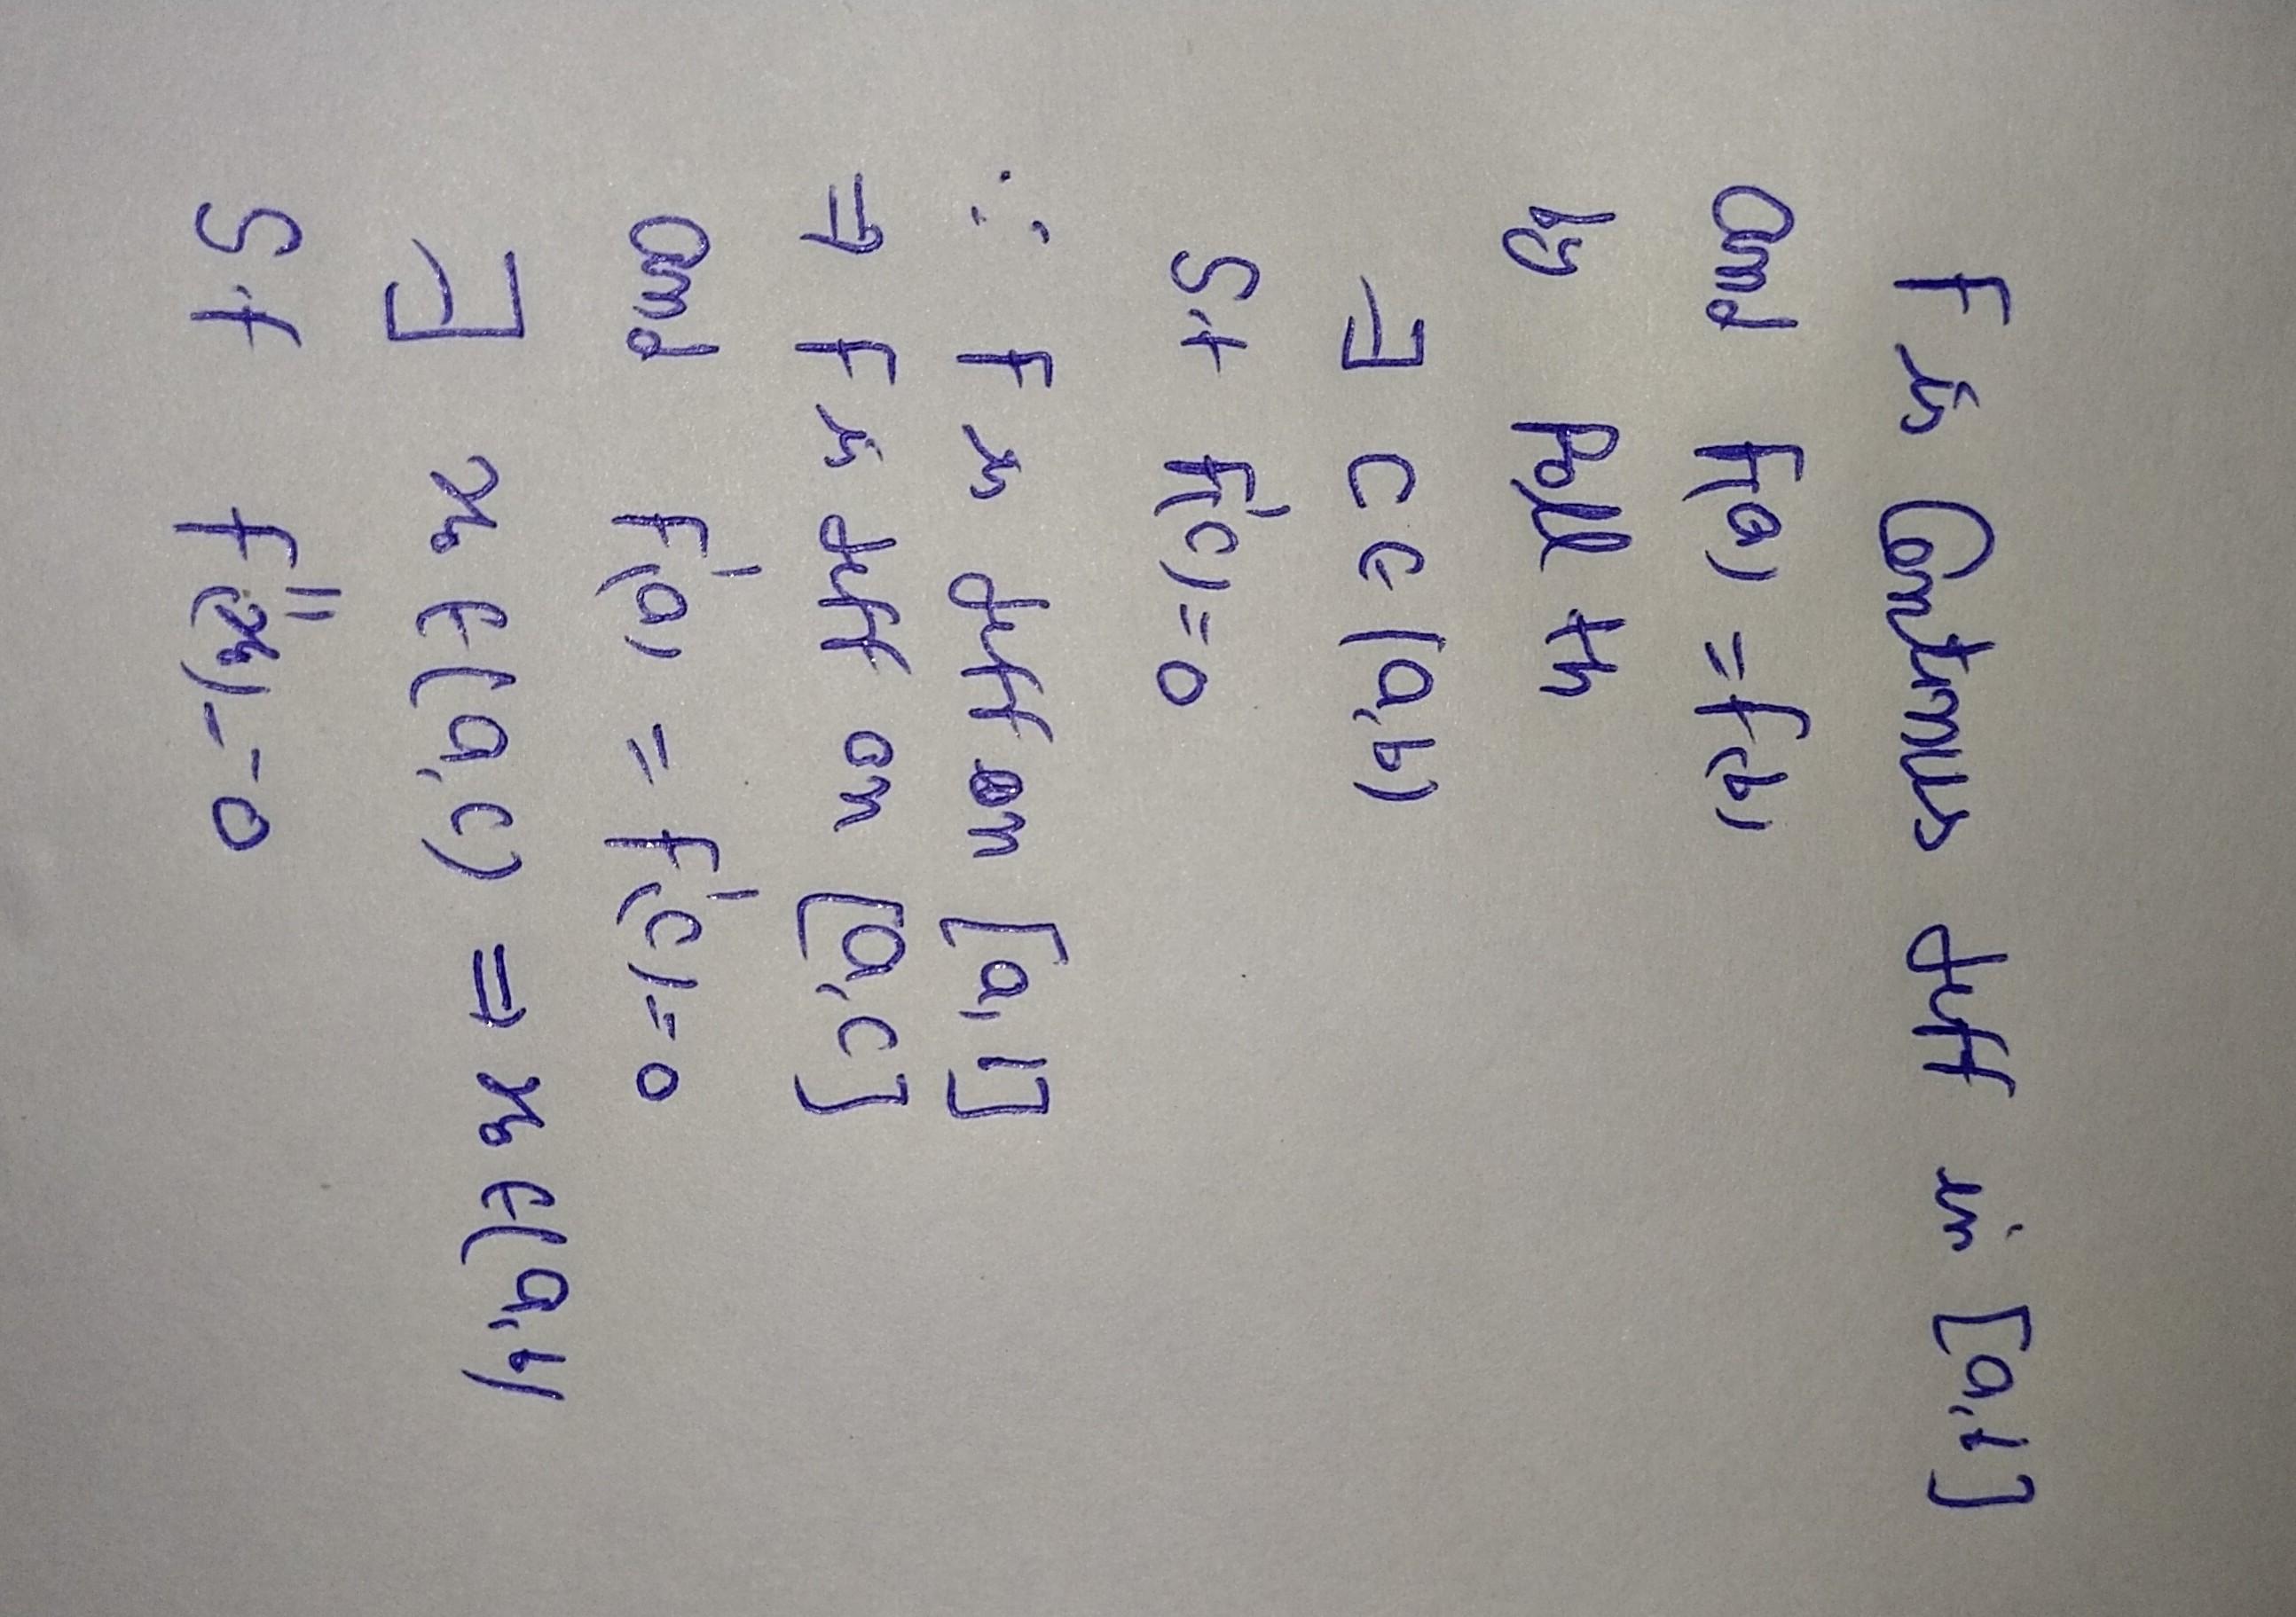 f is Continuous diff in [a,b]
and f(a) = f(b)
by Roll th
∃ c ∈ (a,b)
s.t f'(c) = 0
∵ f is diff on [a,b]
⇒ f is diff on [a,c]
and f'(a) = f'(c) = 0
∃ x ∈ (a,c) ⇒ x ∈ (a,b)
s.t f''(x) = 0